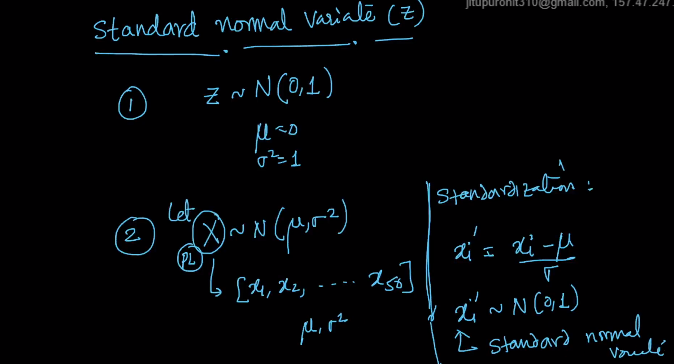 jitupurohit310@gmail.com, 157.47.247.
Standard normal variate (Z)
① Z ~ N(0,1)
μ=0
σ²=1
② Let X ~ N(μ,σ²)
PL
[x₁, x₂, ..... x₅₀]
μ, σ²
Standardization:
xᵢ' = xᵢ-μ/σ
xᵢ' ~ N(0,1)
Standard normal
variate